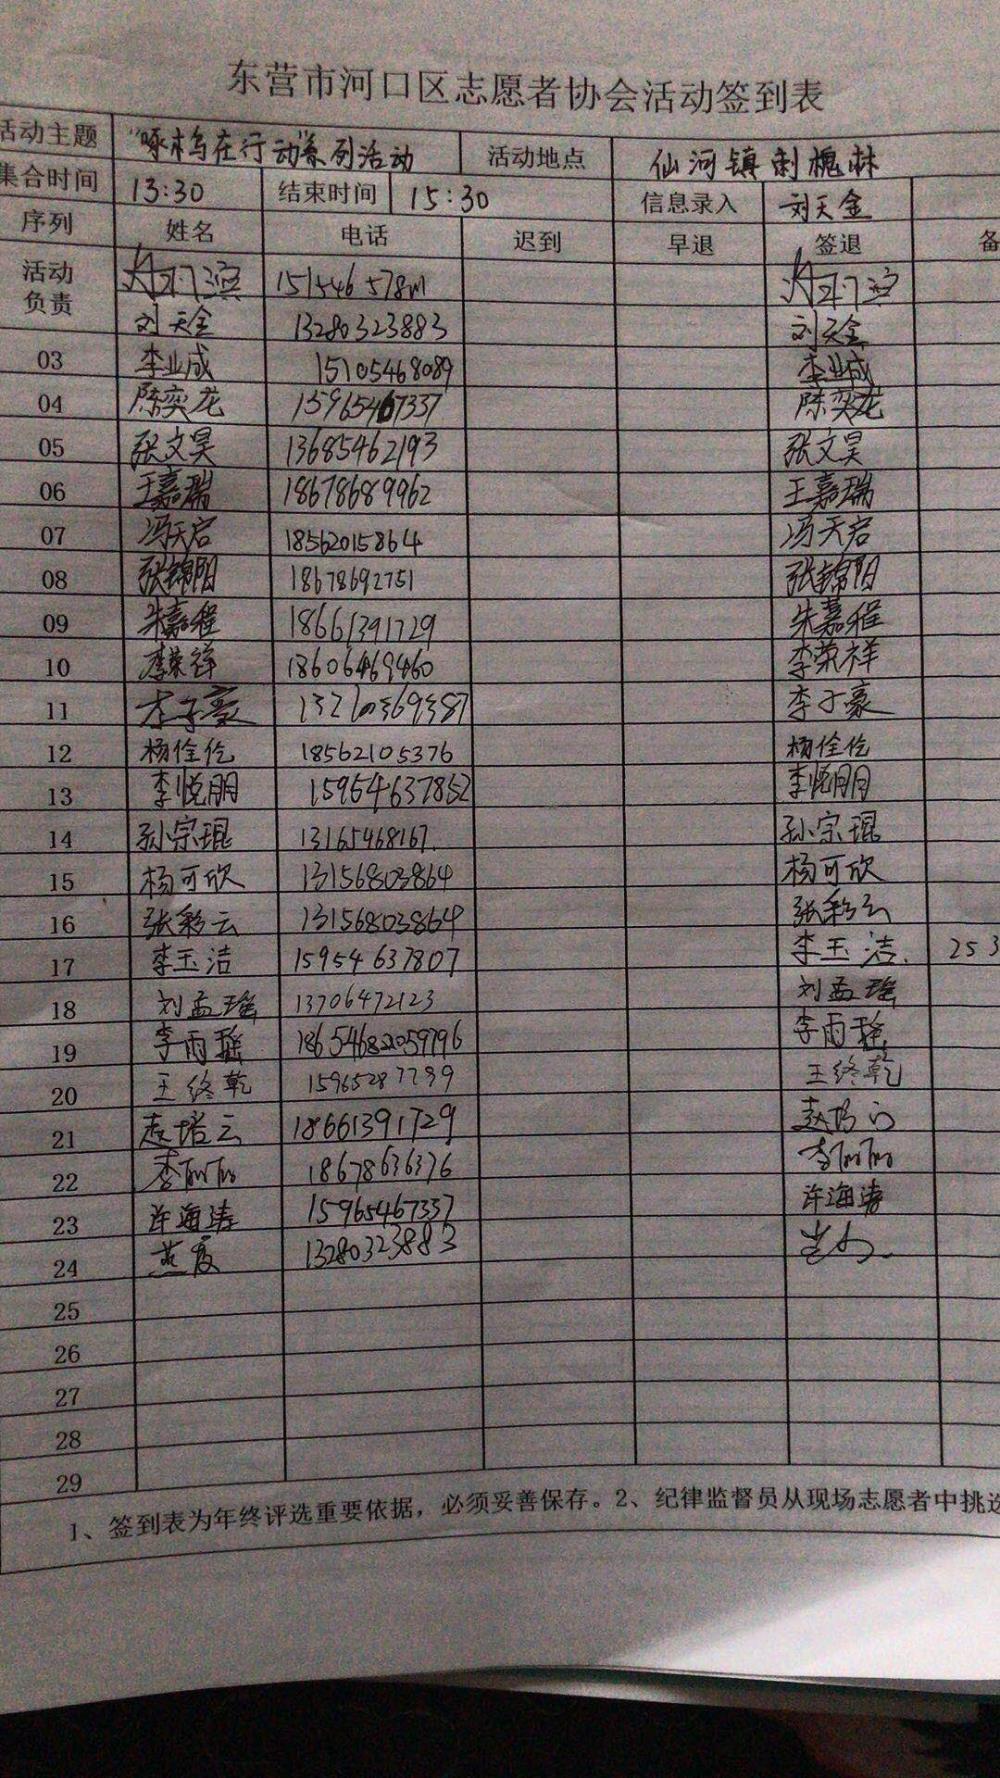 东营市河口区志愿者协会活动签到表
活动主题 "啄木鸟在行动"系列活动 活动地点 仙河镇刺槐林
集合时间 13:30 结束时间 15:30 信息录入 刘天金
序列 姓名 电话 迟到 早退 签退 备
活动负责
刘天金 13280323883 刘天金
03 李业成 15105468089 李业成
04 陈奕龙 15965467337 陈奕龙
05 张文昊 13685462193 张文昊
06 王嘉瑞 18678689962 王嘉瑞
07 冯天启 18562015864 冯天启
08 张锦阳 18678692751 张锦阳
09 朱嘉程 18661391729 朱嘉程
10 李荣祥 18606469460 李荣祥
11 李子豪 李子豪
12 杨佺仡 18562105376 杨佺仡
13 李悦朋 15954637852 李悦朋
14 孙宗琨 13165468167. 孙宗琨
15 杨可欣 131568038864 杨可欣
16 张彩云 131568038864 张彩云
17 李玉洁 15954637807 李玉洁. 253
18 刘孟瑶 13706472123 刘孟瑶
19 李雨瑶 李雨瑶
20 王终乾 15965287799 王终乾
21 赵培云 18661391729
22 李丽丽 18678636376 李丽丽
23 许海涛 15965467337 许海涛
24 燕霞 13280323883
25
26
27
28
29
1、签到表为年终评选重要依据，必须妥善保存。2、纪律监督员从现场志愿者中挑选